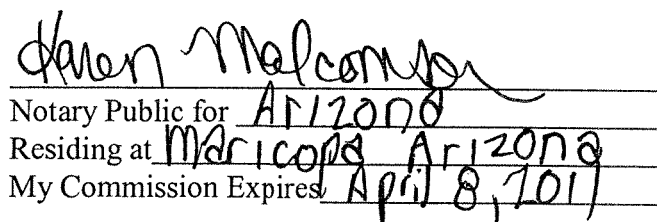 Karen Malcomson
Notary Public for Arizona
Residing at Maricopa Arizona
My Commission Expires April 8, 2011